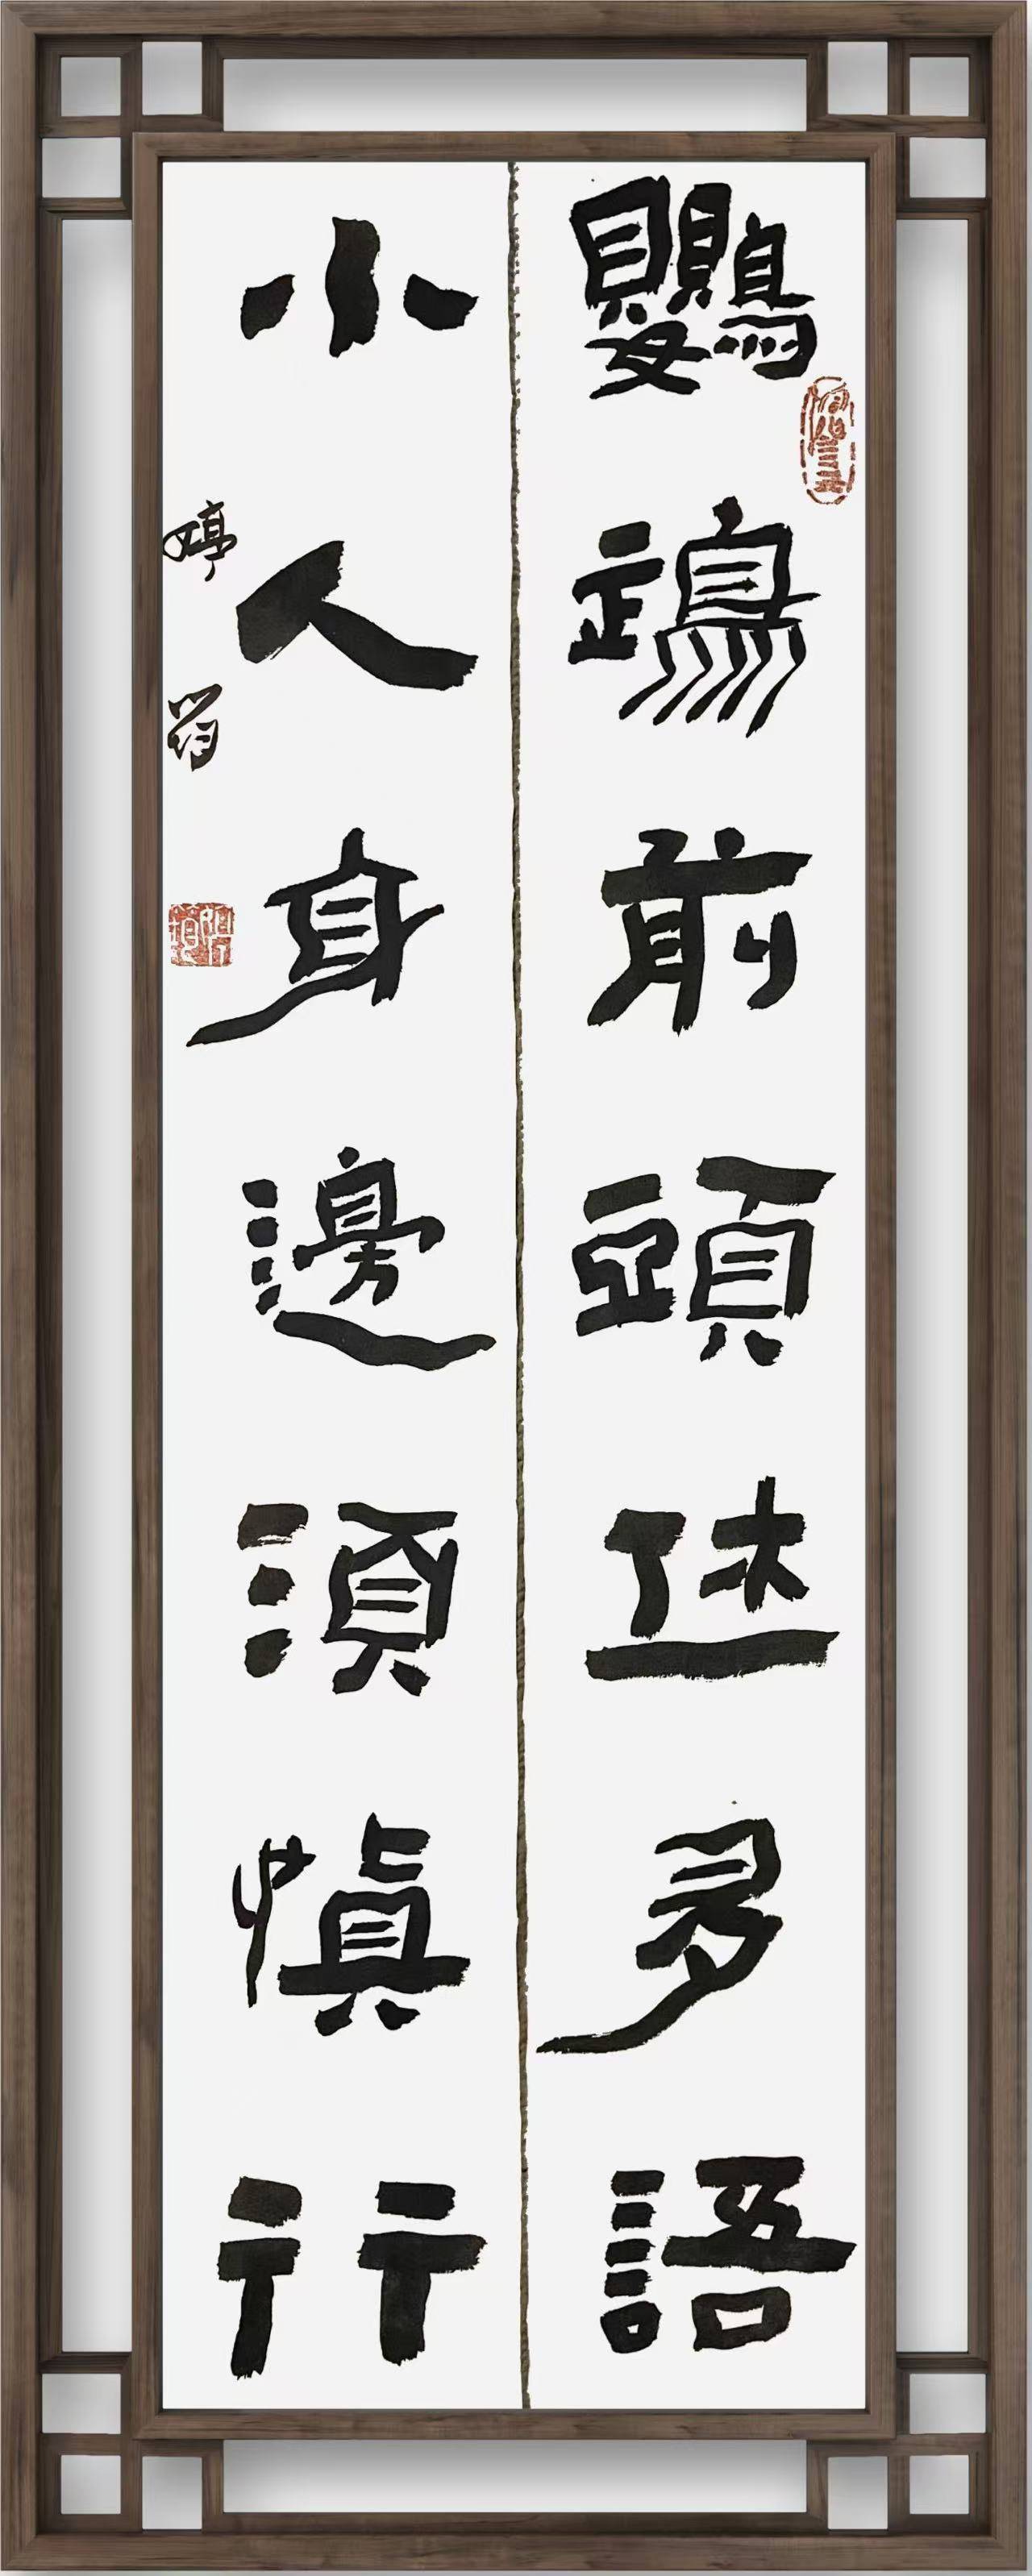 鸚鵡前頭休多語
小人身邊須慎行
婷